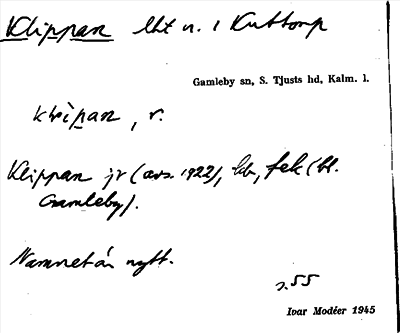 Klippan lht n. 1 Kuttorp
Gamleby sn, S. Tjusts hd, Kalm. l.
klìpan, r.
Klippan jr (avs. 1922), kb, fek (bl.
Gamleby).
Namnet är nytt.
s.55
Ivar Modéer 1945